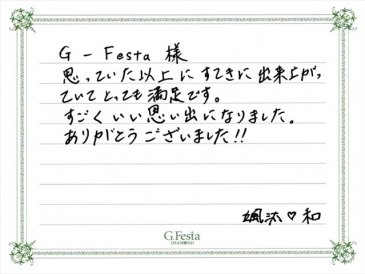 G-Festa 様
思っていた以上にすてきに出来上がっ
ていてとっても満足です。
すごくいい思い出になりました。
ありがとうございました!!
颯汰♡和
G.Festa
DIAMOND